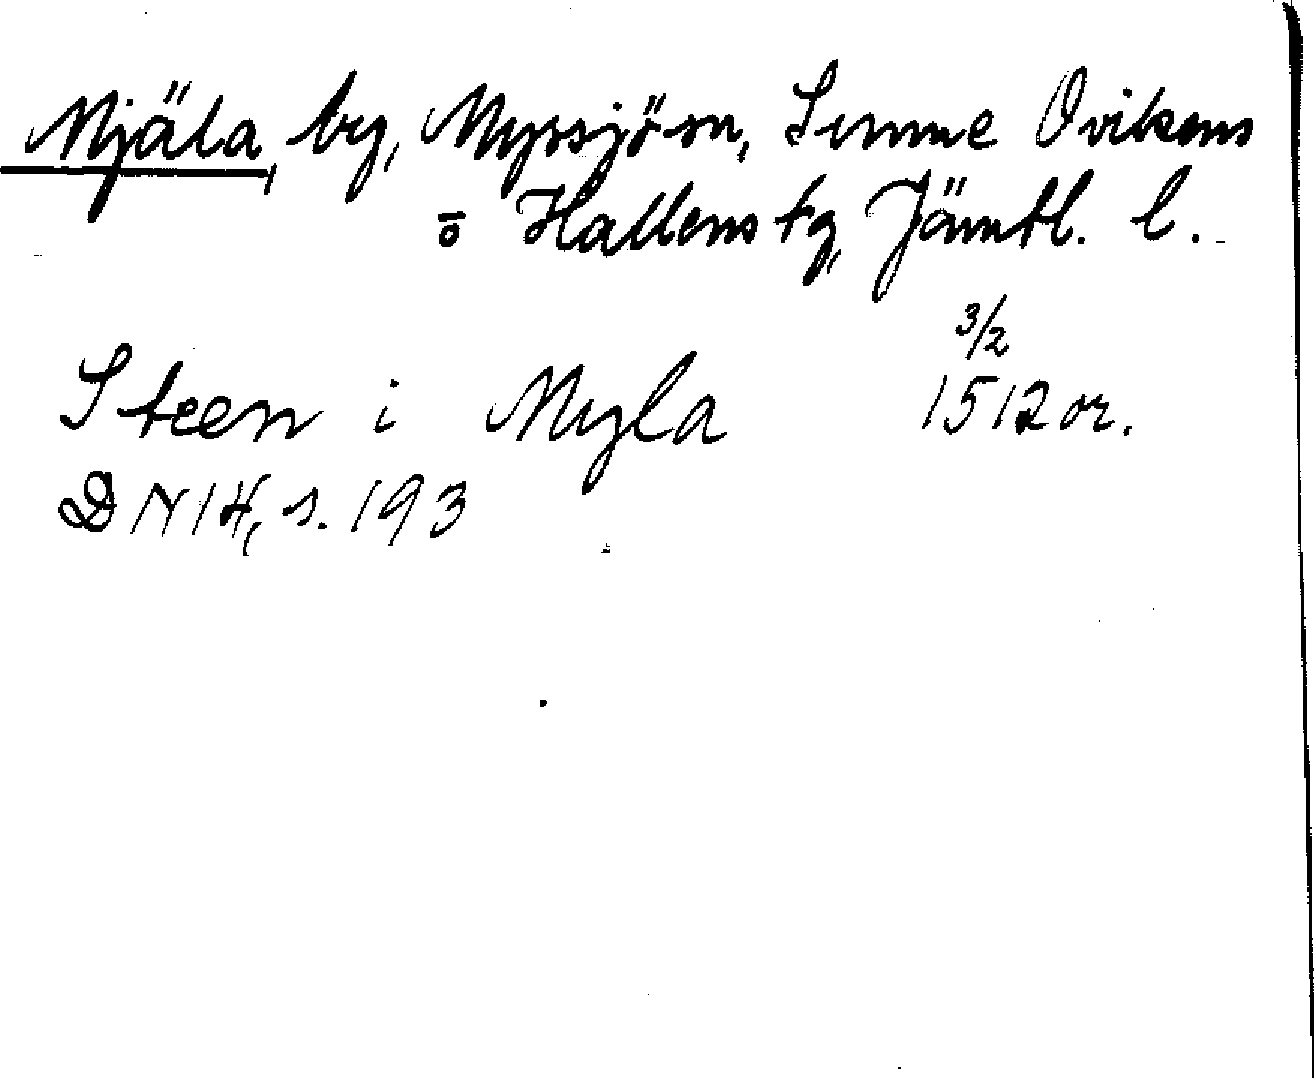 Mjäla, by, Myssjö sn, Sunne Ovikens
o Hallens tg, Jämtl. l.
3/2
Steen i Myla 1512 or.
DN 14, s. 193